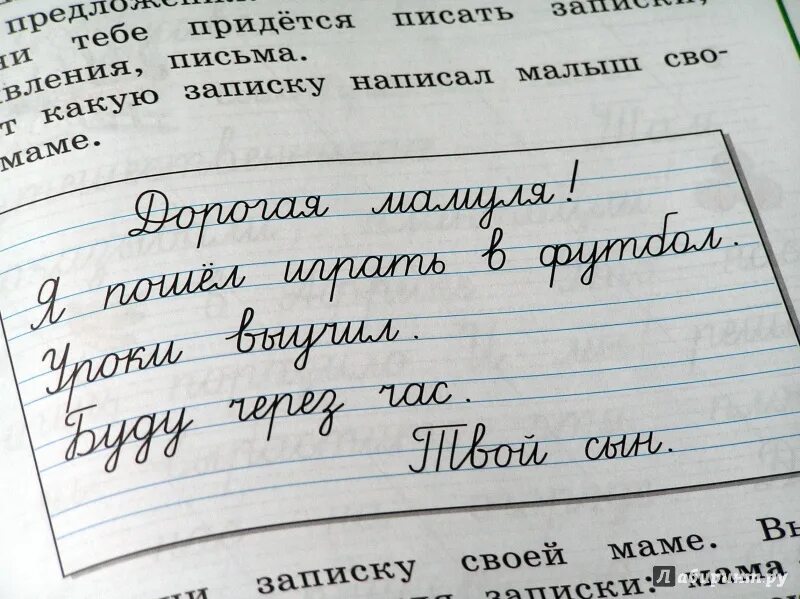 предложений
тебе придётся писать записки,
письма.
какую записку написал малыш сво-
маме.
Дорогая мамуля!
Я пошёл играть в футбол.
Уроки выучил.
Буду через час.
Твой сын.
записку своей маме.
записки: мама
Лабиринт.ру